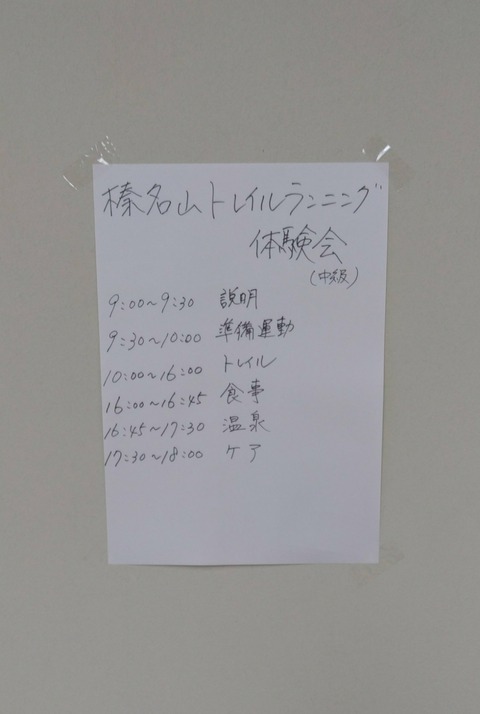 榛名山トレイルランニング
体験会
(中級)
9:00~9:30 説明
9:30~10:00 準備運動
10:00~16:00 トレイル
16:00~16:45 食事
16:45~17:30 温泉
17:30~18:00 ケア